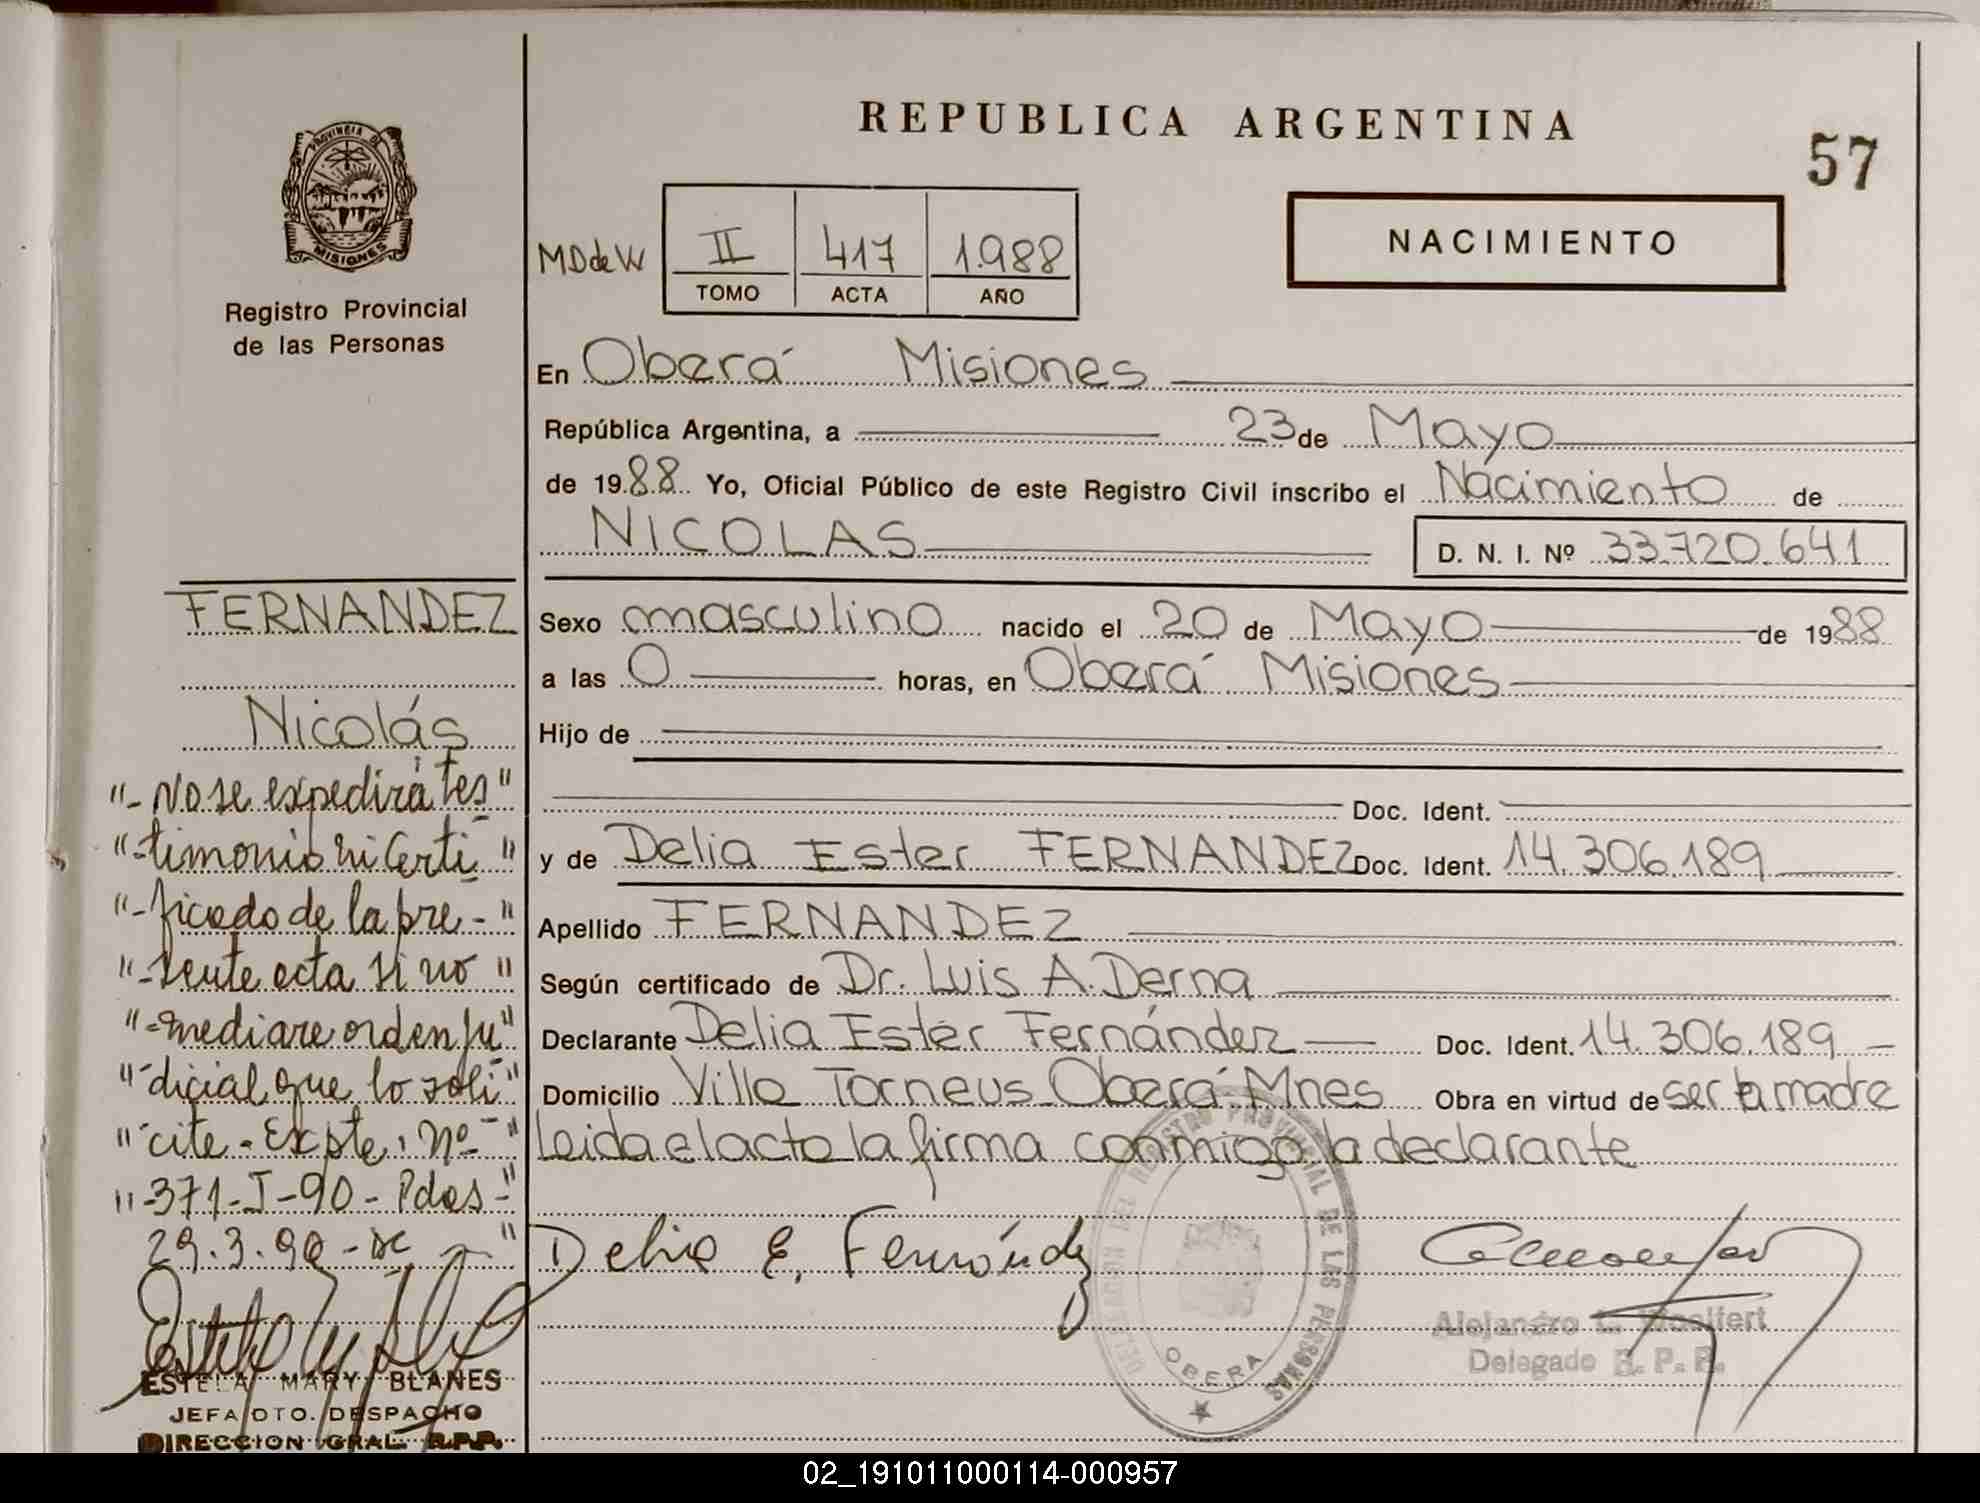 REPUBLICA ARGENTINA
57
PROVINCIA DE
MISIONES
Registro Provincial
de las Personas
MDdeW
II 417 1.988
TOMO ACTA AÑO
NACIMIENTO
En Oberá Misiones
República Argentina, a 23 de Mayo
de 1988 Yo, Oficial Público de este Registro Civil inscribo el Nacimiento de
NICOLAS D. N. I. Nº 33.720.641
FERNANDEZ
Nicolás
"- No se expedirá tes"
"-timonio ni Certi"
"-ficado de la pre-"
"-sente acta si no"
"-mediare orden ju"
"-dicial que lo soli"
"-cite - Expte. Nº-"
"-371-I-90- Pdas-"
29.3.90 -
ESTELA MARY BLANES
JEFA DTO. DESPACHO
DIRECCION GRAL. R.P.P.
Sexo masculino nacido el 20 de Mayo de 1988
a las 0 horas, en Oberá Misiones
Hijo de
Doc. Ident.
y de Delia Ester FERNANDEZ Doc. Ident. 14.306.189
Apellido FERNANDEZ
Según certificado de Dr. Luis A. Derna
Declarante Delia Ester Fernández Doc. Ident. 14.306.189
Domicilio Villa Torneus Oberá Mnes Obra en virtud de ser la madre
Leida el acta la firma conmigo la declarante
Delia E. Fernández
DELEGACION DEL REGISTRO PROVINCIAL DE LAS PERSONAS
OBERA
Alejandro
Delegado R. P. P.
02_191011000114-000957